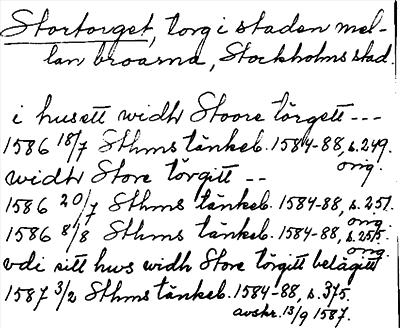 Stortorget, torg i staden mel-
lan broarna, Stockholms stad.
i husett widh Stoore törgett ---
1586 18/7 Sthms tänkeb. 1584-88, s.249.
orig.
widh Store törgitt --
1586 20/7 Sthms tänkeb. 1584-88, s.251.
orig.
1586 8/8 Sthms tänkeb. 1584-88, s.255.
orig.
vdi sitt hws widh Store törgitt belägitt
1587 3/2 Sthms tänkeb. 1584-88, s.375.
avskr. 13/9 1587.